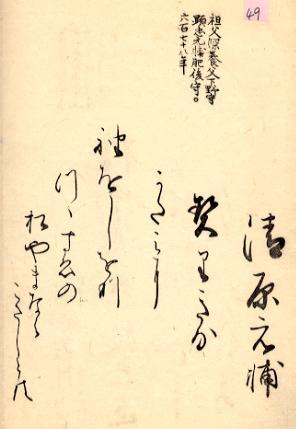 49
祖父深養父下野守
顕忠元輔肥後守。
六百七十八年
清原元輔
契里きな
かたみに
袖をしほ利
つゝすゑの
松やまなみ
こさしとは